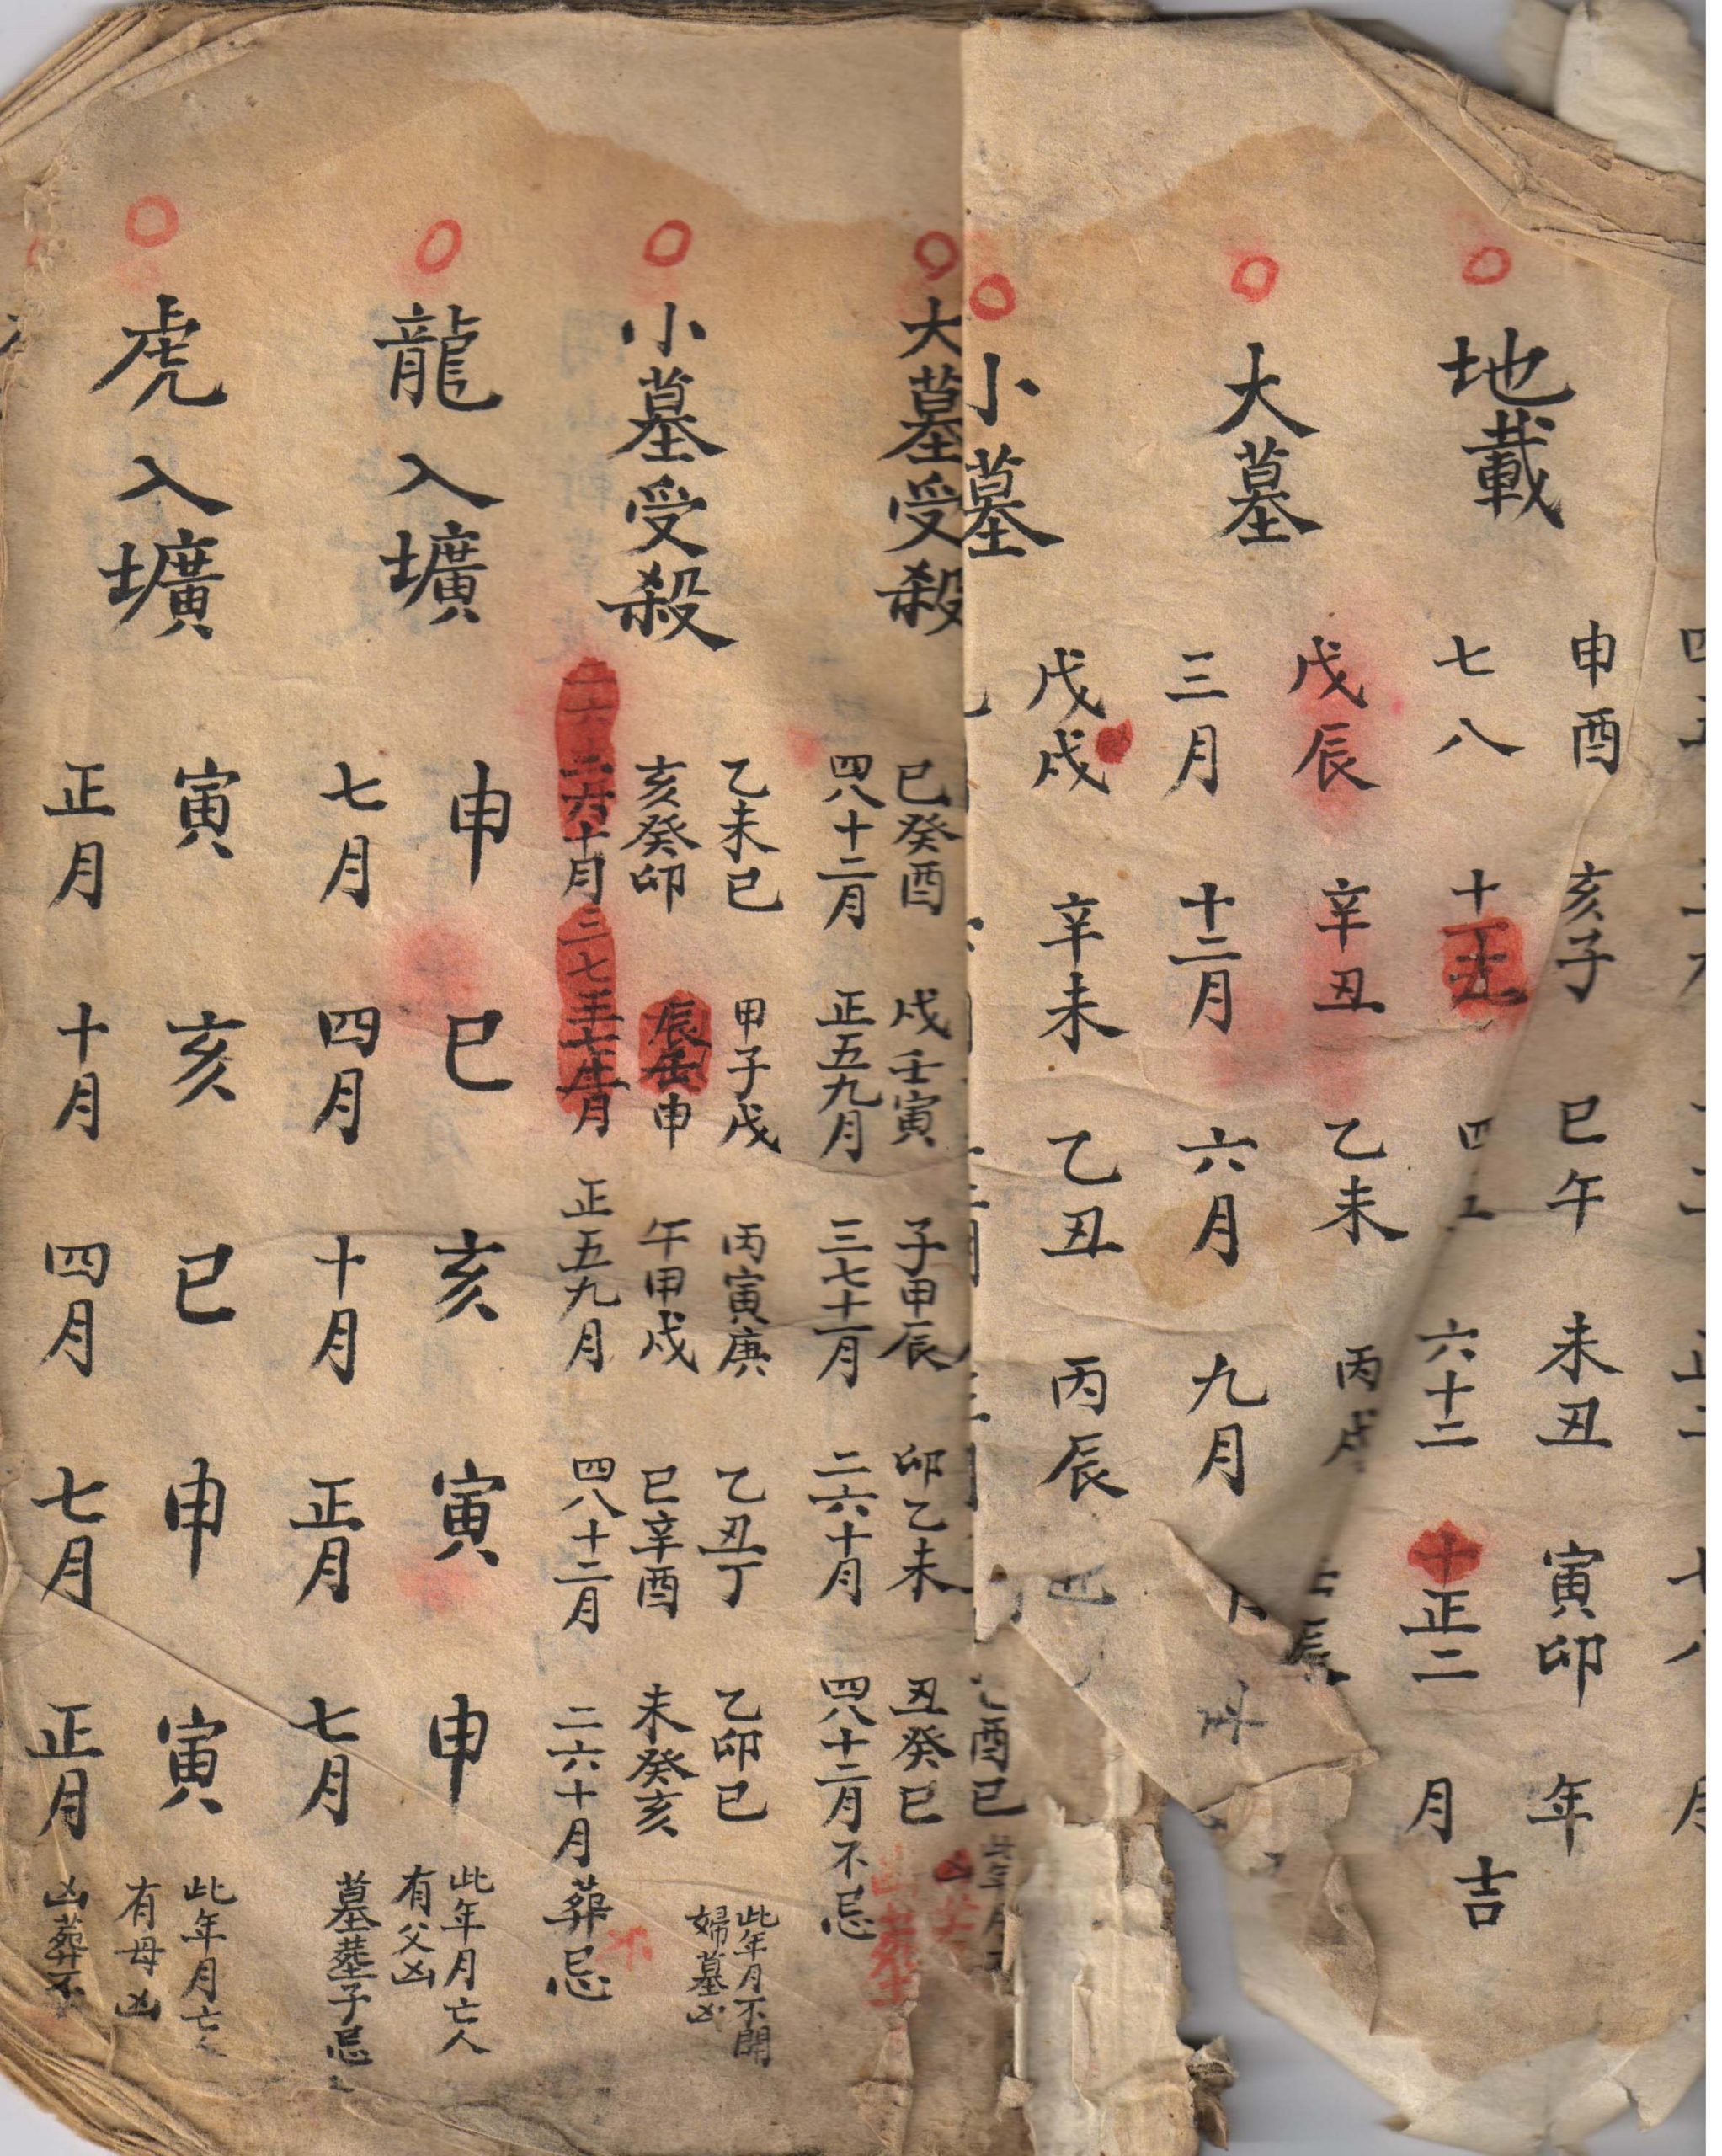 地載
申酉 亥子 巳午 未丑 寅卯 年
七八 十 四 六十二 正二 月
吉
大墓
戊辰 辛丑 乙未 丙戌 辰
三月 十二月 六月 九月
小墓
戊戌 辛未 乙丑 丙辰
酉已
大墓受殺
已癸酉 戌壬寅 子甲辰 卯乙未 丑癸巳
四八十二月 正五九月 三七十一月 二六十月 四八十二月 不忌
小墓受殺
乙未已 甲子戊 丙寅庚 乙丑丁 乙卯已
亥癸卯 辰 申 午甲戌 巳辛酉 未癸亥
十月 月 正五九月 四八十二月 二六十月 葬忌
此年月不開
婦墓凶
龍入壙
申 巳 亥 寅 申
七月 四月 十月 正月 七月
此年月亡人
有父凶
墓塟子忌
虎入壙
寅 亥 巳 申 寅
正月 十月 四月 七月 正月
此年月亡
有母凶
凶葬不